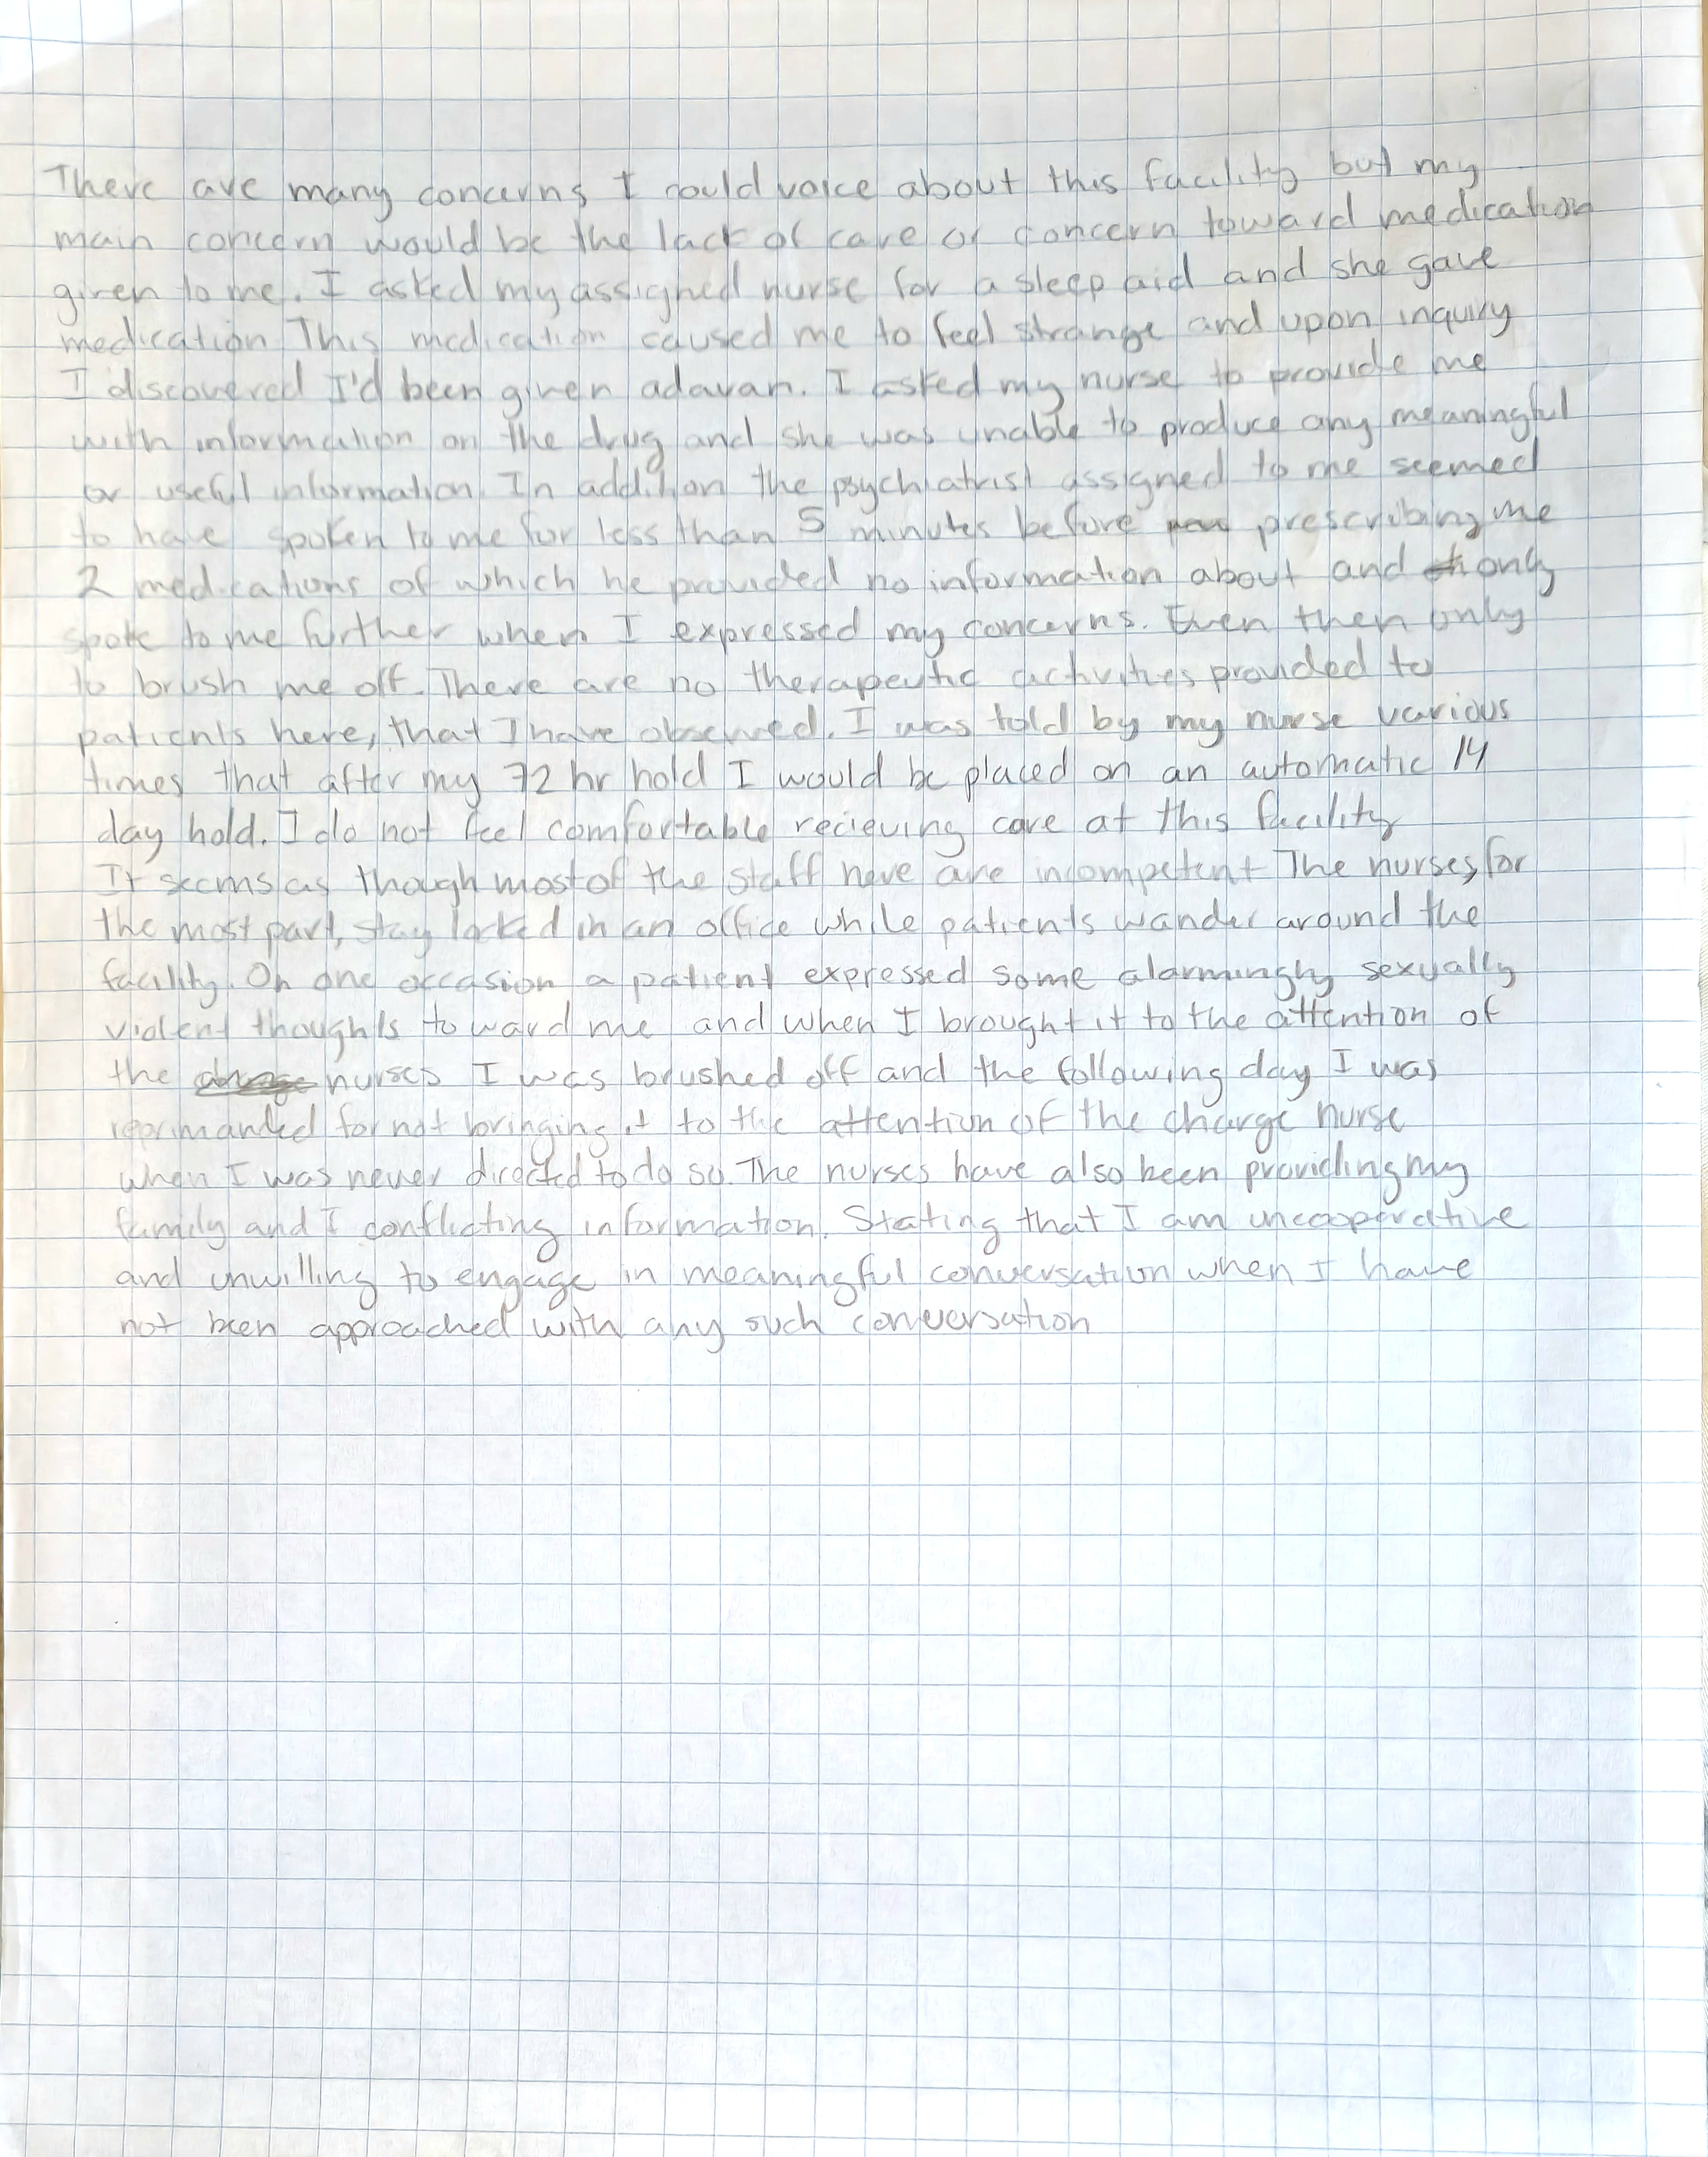 There are many concerns I could voice about this facility but my
main concern would be the lack of care or concern toward medication
given to me. I asked my assigned nurse for a sleep aid and she gave
medication This medication caused me to feel strange and upon inquiry
I discovered I'd been given adavan. I asked my nurse to provide me
with information on the drug and she was unable to produce any meaningful
or useful information. In addition the psychiatrist assigned to me seemed
to have spoken to me for less than 5 minutes before prescribing me
2 medications of which he provided no information about and only
spoke to me further when I expressed my concerns. Even then only
to brush me off. There are no therapeutic activities provided to
patients here, that I have observed. I was told by my nurse various
times that after my 72 hr hold I would be placed on an automatic 14
day hold. I do not feel comfortable recieving care at this facility
It seems as though most of the staff here are incompetent The nurses, for
the most part, stay locked in an office while patients wander around the
facility. On one occasion a patient expressed some alarmingly sexually
violent thoughts toward me and when I brought it to the attention of
the nurses I was brushed off and the following day I was
reprimanded for not bringing it to the attention of the charge nurse
when I was never directed to do so. The nurses have also been providing my
family and I conflicting information. Stating that I am uncooperative
and unwilling to engage in meaningful conversation when I have
not been approached with any such conversation